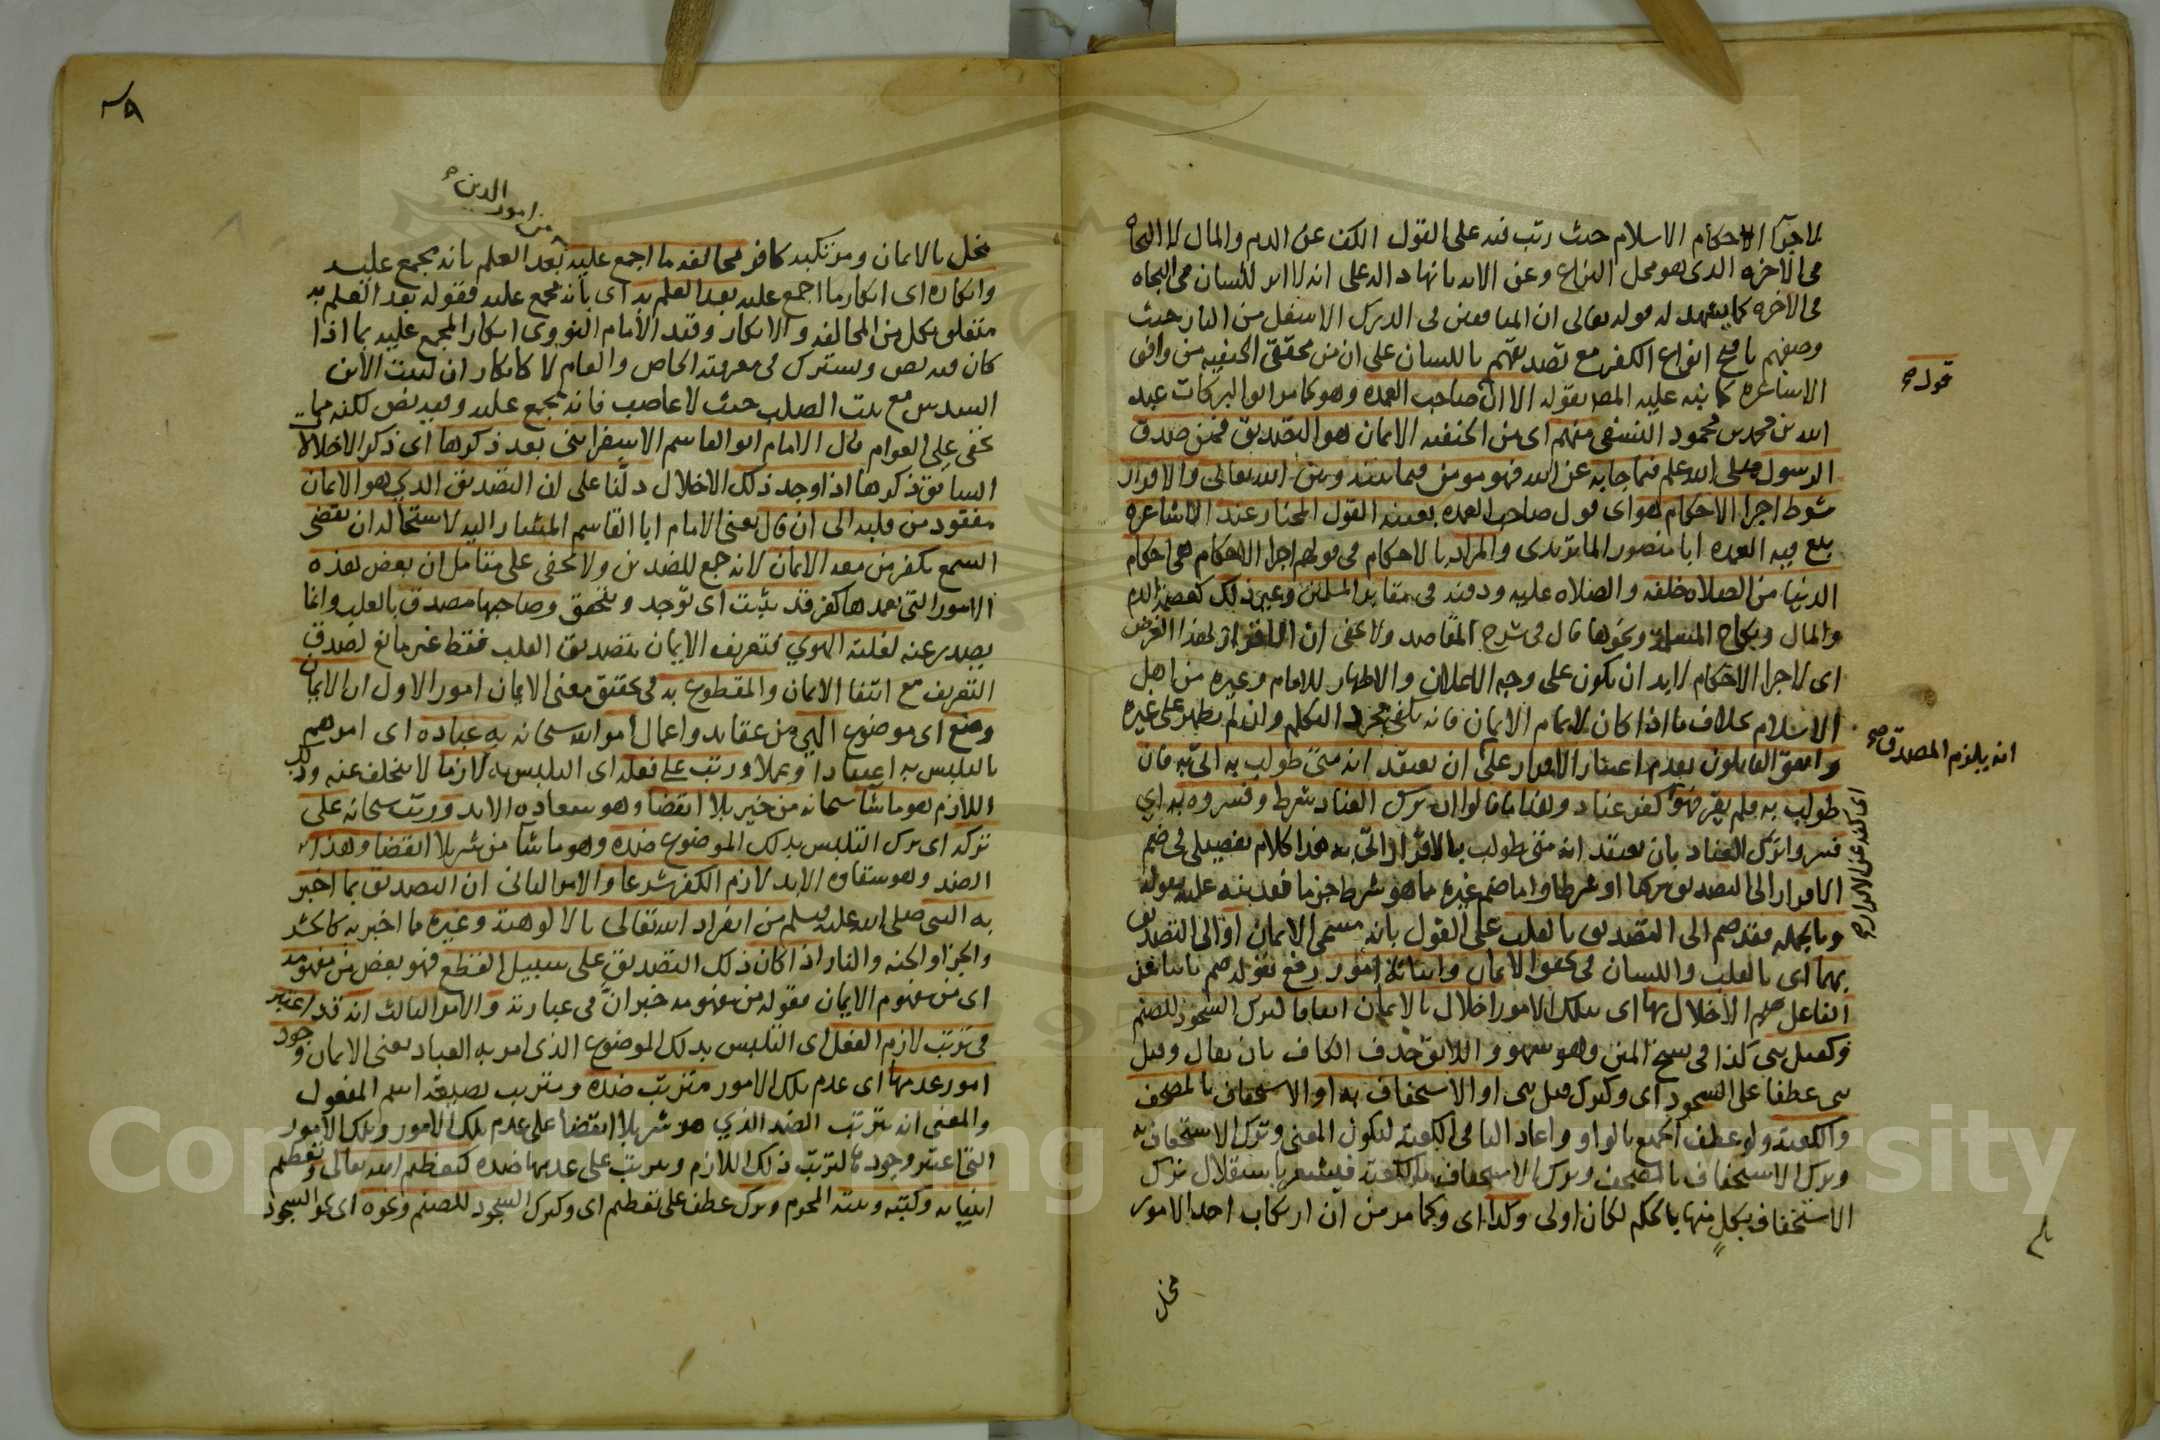 لاجرآ الاحكام الاسلام حيث رتب فيه على القول الكف عن الدم والمال لا النجاه
فى الاخره الذى هو محل النزاع وعن الايه بانها داله على انه لا اثر للسان فى النجاه
فى الاخره كما يشهد له قوله تعالى ان المنافقين فى الدرك الاسفل من النار حيث
وصفهم باقبح انواع الكفر مع تصديقهم باللسان على ان من محققى الحنفيه من وافق
الاشاعره كما نبه عليه المص بقوله الا ان صاحب العمده وهو كما مر ابو البركات عبد
الله بن محمد بن محمود النسفى منهم اى من الحنفيه الايمان هو التصديق فمن صدق
قوله صح
الرسول صلى الله علم فيما جا به عن الله فهو مومن فيما بينه وبين الله تعالى والاقرار
شرط اجرا الاحكام هو اى قول صاحب العمده بعينه القول المختار عند الاشاعره
تبع فيه العمده ابا منصور الماتريدى والمراد بالاحكام فى قولهم اجرا الاحكام هى احكام
الدنيا من الصلاه خلفه والصلاه عليه ودفنه فى مقابر المسلمين وغير ذلك كعصمة الدم
والمال ونكاح المسلمة ونحوها قال فى شرح المقاصد ولا يخفى ان الاقرار لهذا الغرض
اى لاجرا الاحكام لابد ان يكون على وجه الاعلان والاظهار للامام وغيره من اهل
الاسلام بخلاف ما اذا كان لاتمام الايمان فانه يكفى مجرد التكلم وان لم يظهر على غيره
واتفق القايلون بعدم اعتبار الاقرار على ان يعتقد انه متى طولب به اتى به فان
انه يلزم المصدق صح
طولب به فلم يقر فهو كفر عناد وهذا ما قالوا ان ترك العناد شرط وفسروه به اي
اى كفه عن الاقرار صح
فسروا ترك العناد بان يعتقد انه متى طولب بالاقرار اتى به هذا كلام تفصيلى فى ضم
الاقرار الى التصديق ركنا او شرطا واما ضم غيره مما هو شرط جزما فقد نبه عليه بقوله
وبالجمله فقد ضم الى التصديق بالقلب على القول بانه مسمى الايمان او الى التصديق
بهما اى بالقلب واللسان فى تحقق الايمان واثباته امور رفع بقوله ضم نائبا عن
الفاعل الاخلال بها اى بتلك الامور اخلال بالايمان اتفاقا كترك السجود للصنم
وكقتل نبى كذا فى نسخ المتن وهو سهو واللايق حذف الكاف بان يقال وقتل
نبى عطفا على السجود اى وكترك قتل نبى او الاستخفاف به او الاستخفاف بالمصحف
والكعبة ولو عطف الجميع بالواو واعاد البا فى الكعبة ليكون المعنى وترك الاستخفاف به
وترك الاستخفاف بالمصحف وترك الاستخفاف بالكعبة فيشعر باستقلال ترك
الاستخفاف بكل منها بالحكم لكان اولى وكذا اى وكما مر من ان ارتكاب احد الامور
مخل
٣٩
من امور الدين صح
مخل بالايمان ومرتكبه كافر مخالفه ما اجمع عليه بعد العلم بانه مجمع عليه
وانكاره اى انكار ما اجمع عليه بعد العلم به اى بانه مجمع عليه فقوله بعد العلم به
متعلق بكل من المخالفه والانكار وقيد الامام النووى انكار المجمع عليه بما اذا
كان فيه نص ويشترك فى معرفته الخاص والعام لا كانكار ان لبنت الابن
السدس مع بنت الصلب حيث لا عاصب فانه مجمع عليه وفيه نص لكنه مما
يخفى على العوام قال الامام ابو القاسم الاسفراينى بعد ذكرها اى ذكر الاخلالا
السابق ذكرها اذا وجد ذلك الاخلال دلنا على ان التصديق الذي هو الايمان
مفقود من قلبه الى ان قال يعنى الامام ابا القاسم المشار اليه لاستحالة ان يقضى
السمع بكفر من معه الايمان لانه جمع للضدين ولا يخفى على متامل ان بعض هذه
الامور التى تعمدها كفر قد يثبت اى توجد ويتحقق وصاحبها مصدق بالقلب وانما
يصدر عنه لغلبة الهوي فتعريف الايمان بتصديق القلب فقط غير مانع لصدق
التعريف مع انتفا الايمان والمقطوع به فى تحقيق معنى الايمان امور الاول ان الايمان
وضع اى موضوع الهى من عقايد واعمال امر الله سبحانه به عباده اى امرهم
بالتلبس به اعتقادا وعملا ورتب على فعله اى التلبس به لازما لا يتخلف عنه وذلك
اللازم هو ماشا سبحانه من خير بلا انقضا وهو سعادة الابد ورتب سبحانه على
تركه اى ترك التلبس بذلك الموضوع ضده وهو ماشا من شر بلا انقضا وهذا
الضد وهو شقاوه الابد لازم الكفر شرعا والامر الثانى ان التصديق بما اخبر
به النبى صلى الله عليه وسلم من انفراد الله تعالى بالالوهيه وغيره مما اخبر به كالحشر
والجزا والجنه والنار اذا كان ذلك التصديق على سبيل القطع فهو بعض من مفهومه
اى من مفهوم الايمان فقوله من مفهومه خبر ان فى عبارته والامر الثالث انه قد اعتبر
فى ترتب لازم الفعل اى التلبس بذلك الموضوع الذى امر به العباد يعنى الايمان وجود
امور عدمها اى عدم تلك الامور مترتب ضده ومترتب بصيغة اسم المفعول
والمعنى انه يترتب الضد الذي هو شر بلا انقضا على عدم تلك الامور وتلك الامور
التى اعتبر وجودها لترتب ذلك اللازم وترتب على عدمها ضده كتعظيم الله تعالى وتعظيم
انبيائه وكتبه وبيته المحرم وترك عطف على تعظيم اى وكترك السجود للصنم ونحوه اى نحو السجود
Copyright © King Saud University